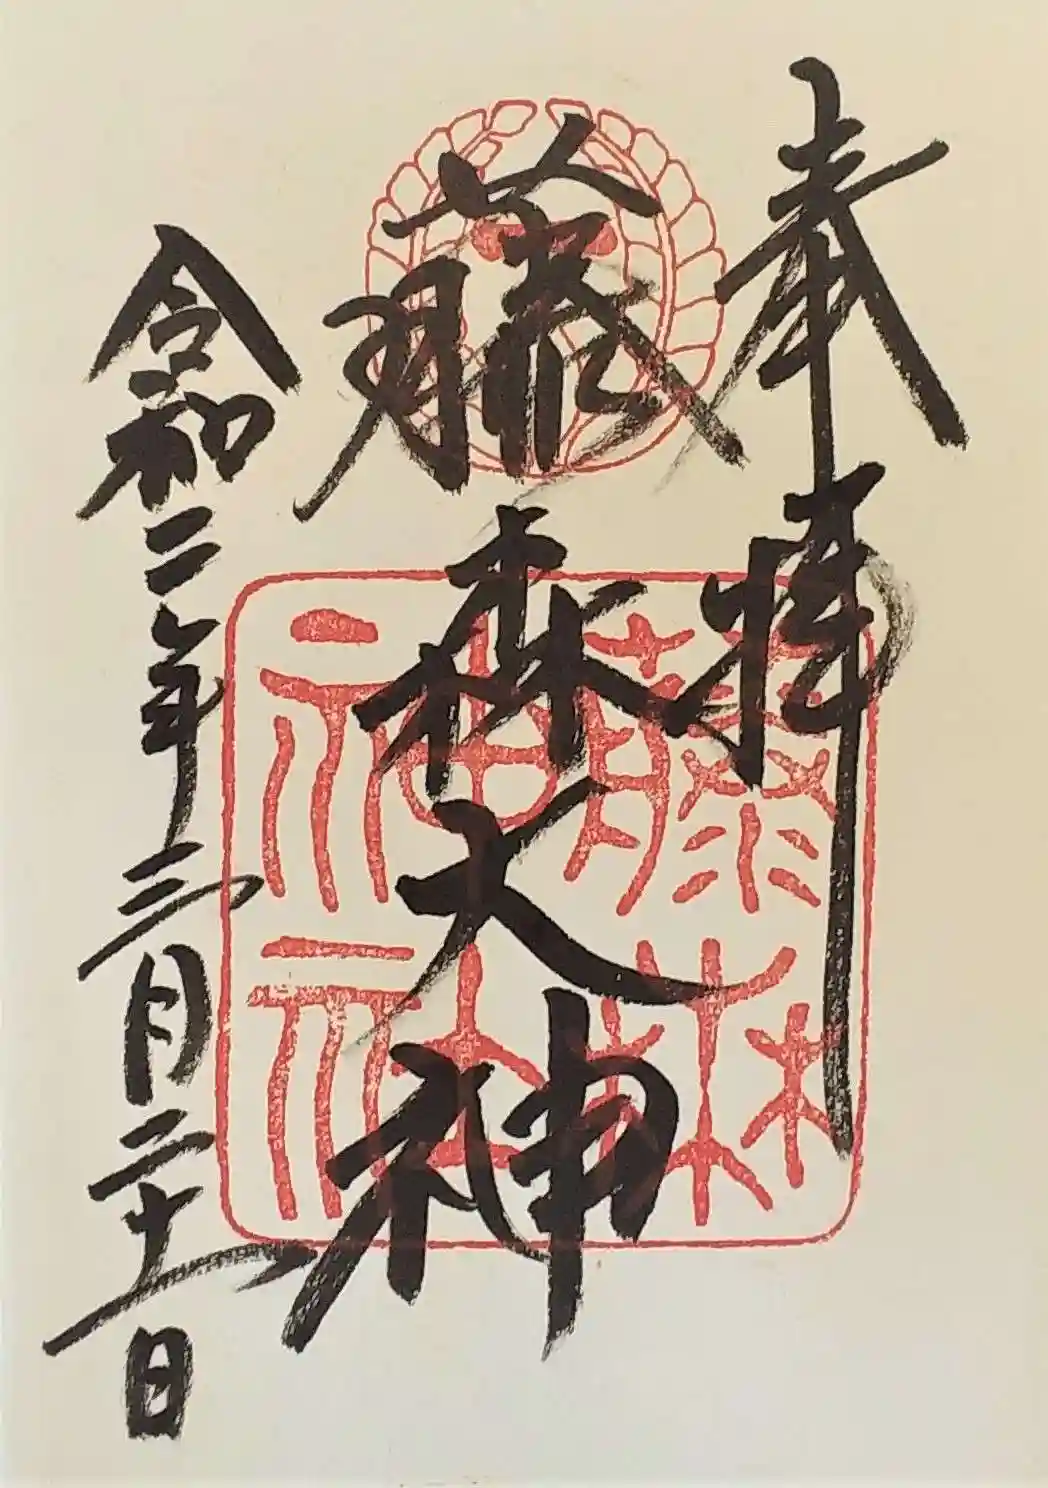 奉拝
藤森大神
令和二年三月二十一日
藤林
神社